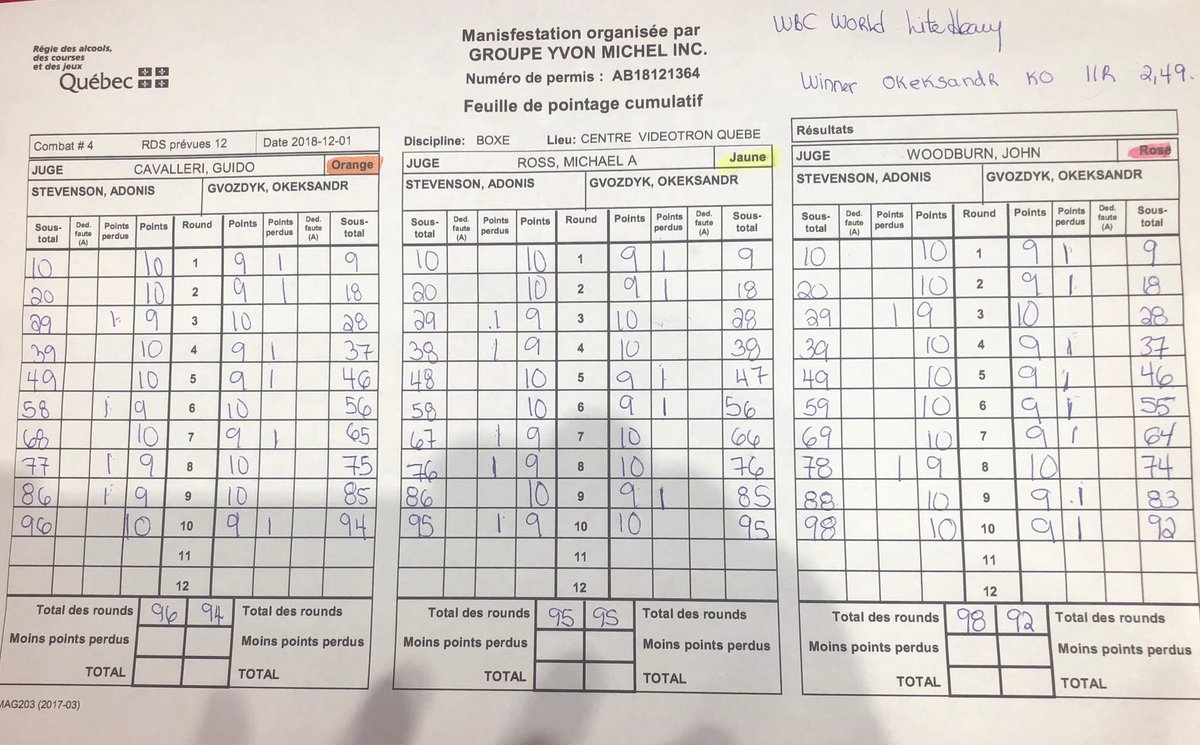 Régie des alcools,
des courses
et des jeux
Québec
Manisfestation organisée par
GROUPE YVON MICHEL INC.
Numéro de permis : AB18121364
Feuille de pointage cumulatif
WBC WORLD LiteHeavy
Winner OKeKsandR KO 11R 2,49.
Combat # 4 RDS prévues 12 Date 2018-12-01
JUGE CAVALLERI, GUIDO Orange
STEVENSON, ADONIS GVOZDYK, OKEKSANDR
Sous-total Ded. faute (A) Points perdus Points Round Points Points perdus Ded. faute (A) Sous-total
10 10 1 9 1 9
20 10 2 9 1 18
29 1 9 3 10 28
39 10 4 9 1 37
49 10 5 9 1 46
58 1 9 6 10 56
68 10 7 9 1 65
77 1 9 8 10 75
86 1 9 9 10 85
96 10 10 9 1 94
11
12
Total des rounds 96 94 Total des rounds
Moins points perdus Moins points perdus
TOTAL TOTAL
Discipline: BOXE Lieu: CENTRE VIDEOTRON QUEBE
JUGE ROSS, MICHAEL A Jaune
STEVENSON, ADONIS GVOZDYK, OKEKSANDR
Sous-total Ded. faute (A) Points perdus Points Round Points Points perdus Ded. faute (A) Sous-total
10 10 1 9 1 9
20 10 2 9 1 18
29 1 9 3 10 28
38 1 9 4 10 38
48 10 5 9 1 47
58 10 6 9 1 56
67 1 9 7 10 66
76 1 9 8 10 76
86 10 9 9 1 85
95 1 9 10 10 95
11
12
Total des rounds 95 95 Total des rounds
Moins points perdus Moins points perdus
TOTAL TOTAL
Résultats
JUGE WOODBURN, JOHN Rose
STEVENSON, ADONIS GVOZDYK, OKEKSANDR
Sous-total Ded. faute (A) Points perdus Points Round Points Points perdus Ded. faute (A) Sous-total
10 10 1 9 1 9
20 10 2 9 1 18
29 1 9 3 10 28
39 10 4 9 1 37
49 10 5 9 1 46
59 10 6 9 1 55
69 10 7 9 1 64
78 1 9 8 10 74
88 10 9 9 1 83
98 10 10 9 1 92
11
12
Total des rounds 98 92 Total des rounds
Moins points perdus Moins points perdus
TOTAL TOTAL
MAG203 (2017-03)